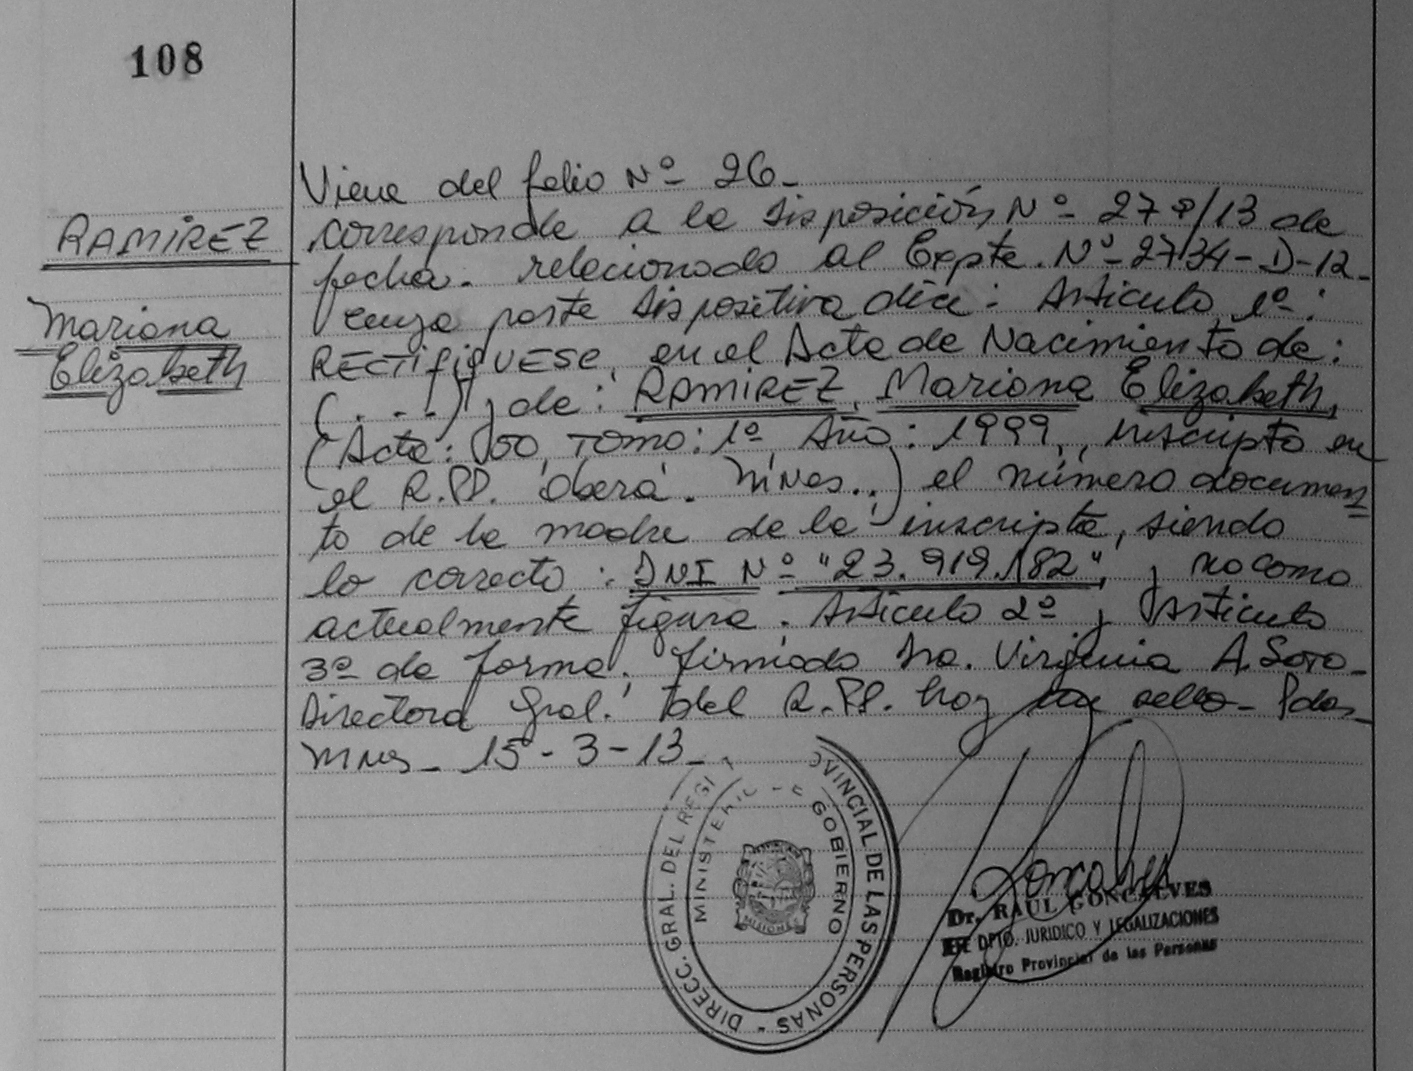 108
RAMIREZ
Mariana
Elizabeth
Viene del folio Nº 26-
corresponde a la disposición Nº /13 de
fecha. relacionado al Expte. Nº 2734-D-12-
cuya parte dispositiva dice: Artículo 1º:
RECTIFIQUESE, en el Acta de Nacimiento de:
(...) y de: RAMIREZ, Mariana Elizabeth,
(Acta: Tomo: 1º Año: 1999, inscripta en
el R.PP. Oberá. Mnes..) el número documen
to de la madre de la inscripta, siendo
lo correcto: DNI Nº "23.919.182", y no como
actualmente figura. Artículo 2º y Artículo
3º de forma. firmado Dra. Virginia A. Soto-
Directora Gral. del R.PP. hay un sello- Pdas-
Mnes- 15-3-13-
DIRECC. GRAL. DEL REGI OVINCIAL DE LAS PERSONAS -
MINISTERIO DE GOBIERNO
MISIONES
Goncalves
Dr. RAUL GONCALVES
JEFE DPTO. JURIDICO Y LEGALIZACIONES
Registro Provincial de las Personas